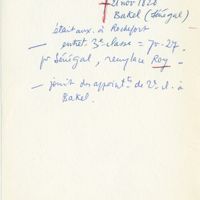 21 nov 1828
Bakel (Sénégal)
était aux. à Rochefort
— entret. 3e classe = 7br 27.
pr Sénégal, remplace Roy —
— jouit des appoint.ts de 2e cl. à
Bakel.